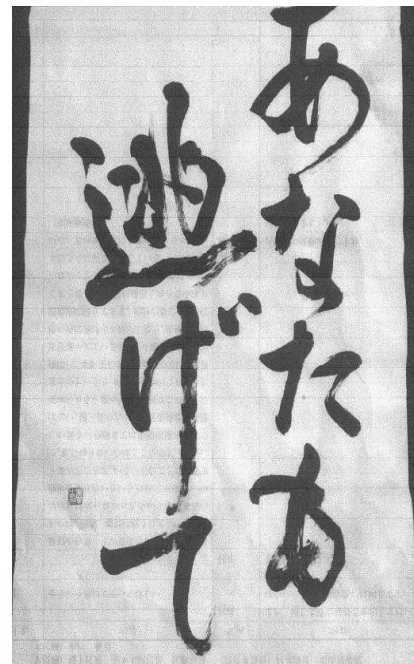 あなた
逃げて